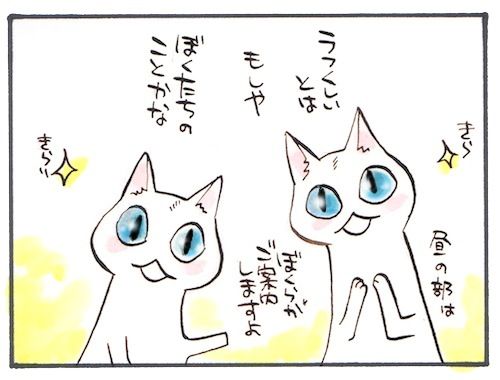 うつくしい
とは
もしや
ぼくたちの
ことかな
きらっ
きらっ
昼の部は
ぼくらが
ご案内
しますよ